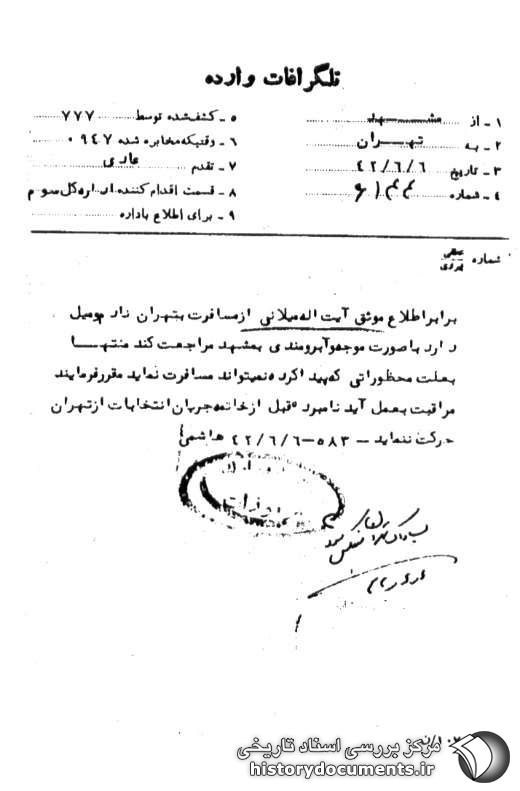 تلگرافات وارده
۱ ـ از مشهد
۲ ـ به تهران
۳ ـ تاریخ ۴۲/۶/۶
۴ ـ شماره
۵ ـ کشف شده توسط ۷۷۷
۶ ـ وقتیکه مخابره شده ۰۹۴۷
۷ ـ تقدم عادی
۸ ـ قسمت اقدام کننده اداره کل سوم
۹ ـ برای اطلاع باداره
شماره
برابر اطلاع موثق آیت اله میلانی از مسافرت بتهران نادم و میل
دارد با صورت موجه و آبرومندی بمشهد مراجعت کند منتها
بعلت محظوراتی که پیدا کرده نمیتواند مسافرت نماید مقرر فرمایند
مراقبت بعمل آید نامبرده قبل از خاتمه جریان انتخابات از تهران
حرکت ننماید ـ ۵۸۳ـ۴۲/۶/۶ هاشمی
مرکز بررسی اسناد تاریخی
historydocuments.ir